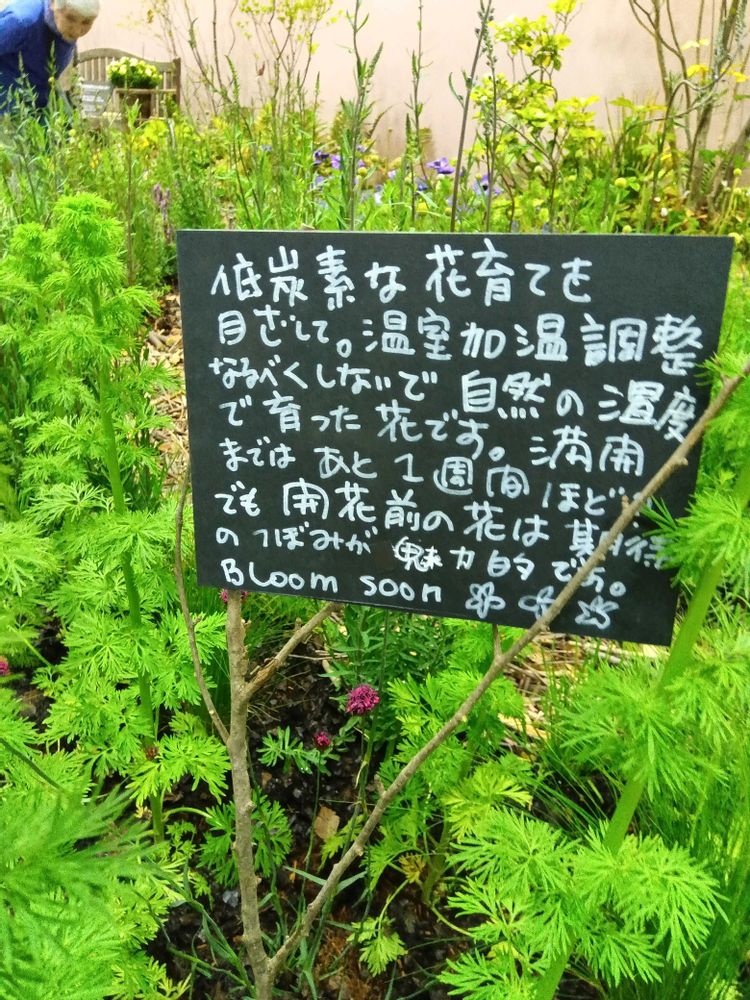 低炭素な花育てを
目ざして。温室加温調整
なるべくしないで自然の温度
で育った花です。満開
まではあと1週間ほど。
でも開花前の花は期待
のつぼみが魅力的です。
Bloom soon